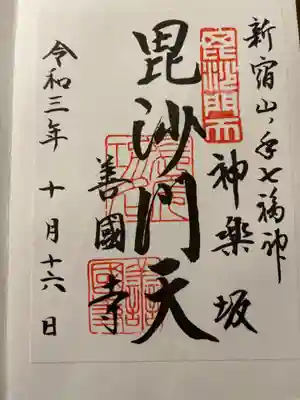 新宿山ノ手七福神
神楽坂
毘沙門天
毘沙門天
善國寺
令和三年十月十六日